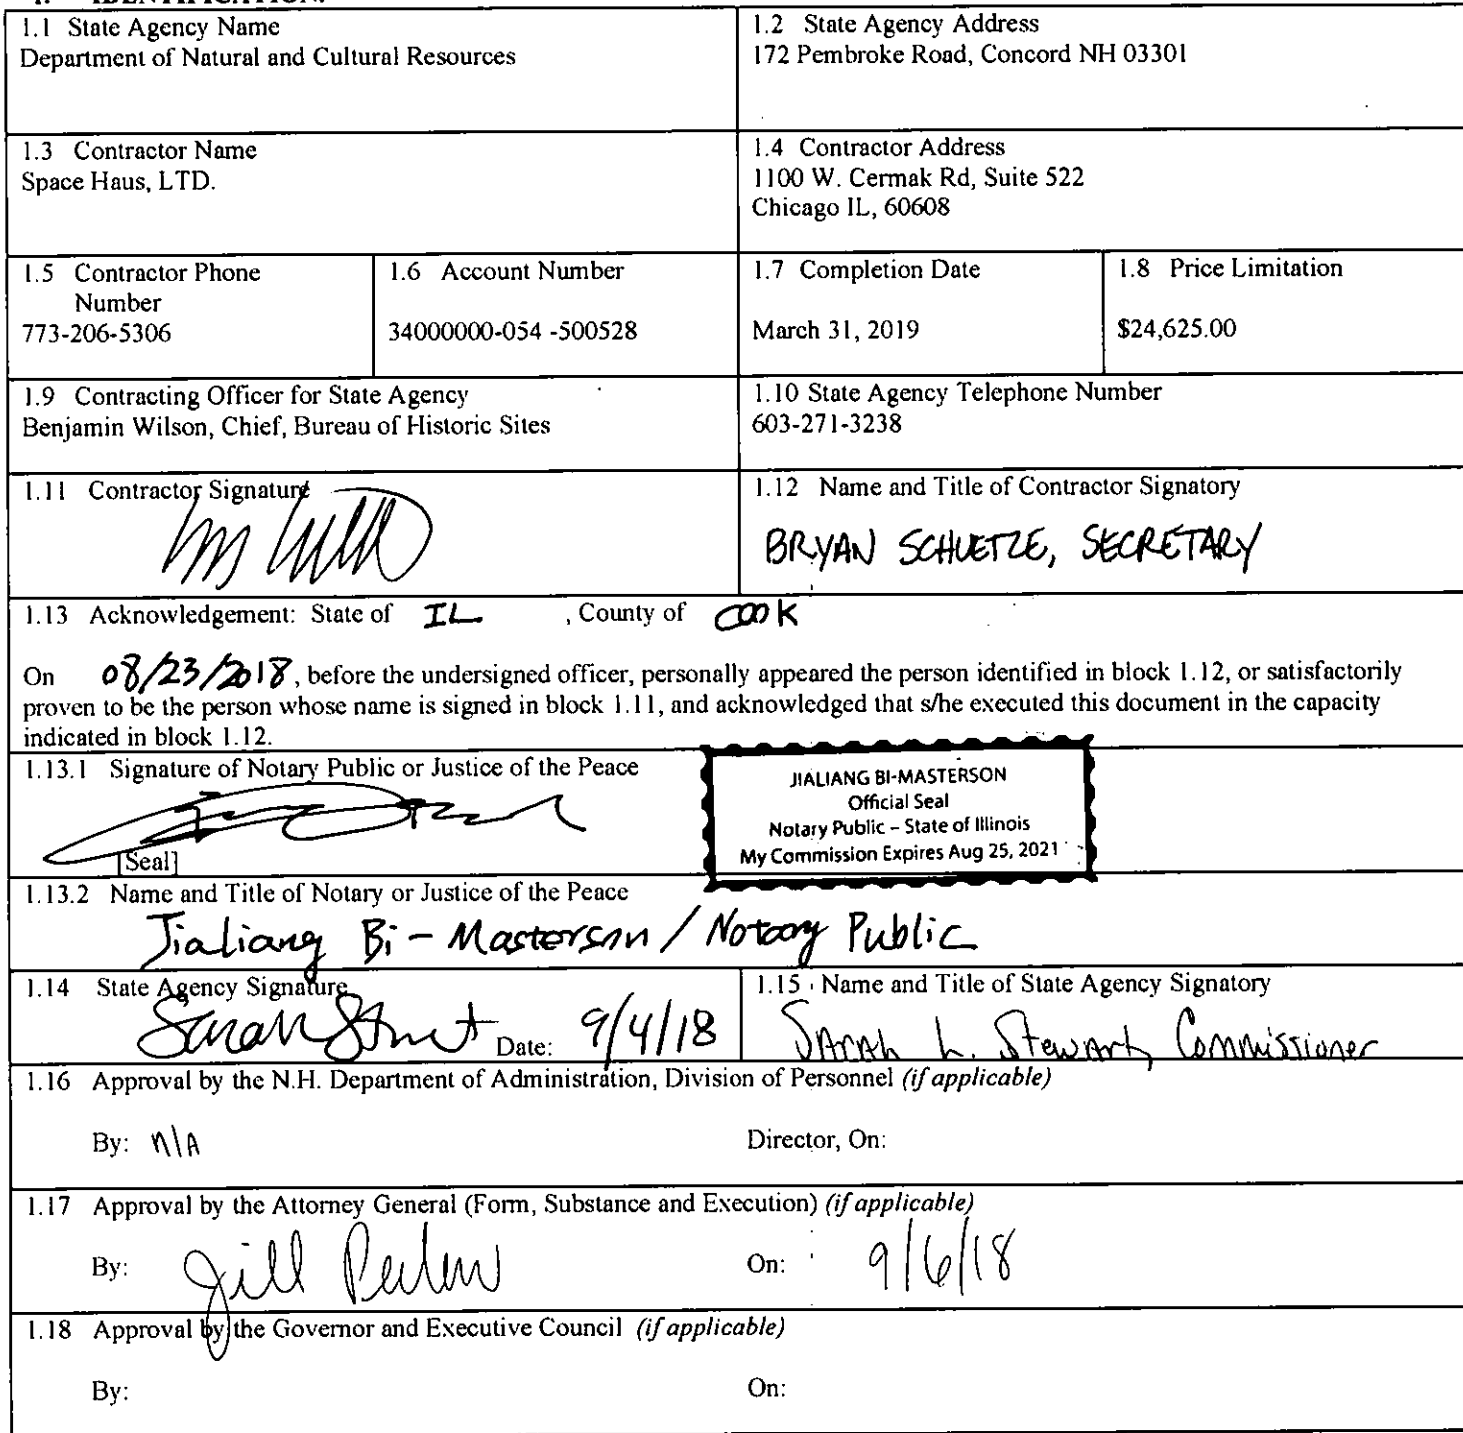 1. IDENTIFICATION.
1.1 State Agency Name
Department of Natural and Cultural Resources
1.2 State Agency Address
172 Pembroke Road, Concord NH 03301
1.3 Contractor Name
Space Haus, LTD.
1.4 Contractor Address
1100 W. Cermak Rd, Suite 522
Chicago IL, 60608
1.5 Contractor Phone
Number
773-206-5306
1.6 Account Number
34000000-054 -500528
1.7 Completion Date
March 31, 2019
1.8 Price Limitation
$24,625.00
1.9 Contracting Officer for State Agency
Benjamin Wilson, Chief, Bureau of Historic Sites
1.10 State Agency Telephone Number
603-271-3238
1.11 Contractor Signature
1.12 Name and Title of Contractor Signatory
BRYAN SCHUETZE, SECRETARY
1.13 Acknowledgement: State of IL , County of COOK
On 08/23/2018, before the undersigned officer, personally appeared the person identified in block 1.12, or satisfactorily
proven to be the person whose name is signed in block 1.11, and acknowledged that s/he executed this document in the capacity
indicated in block 1.12.
1.13.1 Signature of Notary Public or Justice of the Peace
[Seal]
JIALIANG BI-MASTERSON
Official Seal
Notary Public – State of Illinois
My Commission Expires Aug 25, 2021
1.13.2 Name and Title of Notary or Justice of the Peace
Jialiang Bi - Masterson / Notary Public
1.14 State Agency Signature
Date: 9/4/18
1.15 Name and Title of State Agency Signatory
Sarah L. Stewart, Commissioner
1.16 Approval by the N.H. Department of Administration, Division of Personnel (if applicable)
By: n/A
Director, On:
1.17 Approval by the Attorney General (Form, Substance and Execution) (if applicable)
By: Jill
On: 9/6/18
1.18 Approval by the Governor and Executive Council (if applicable)
By:
On: